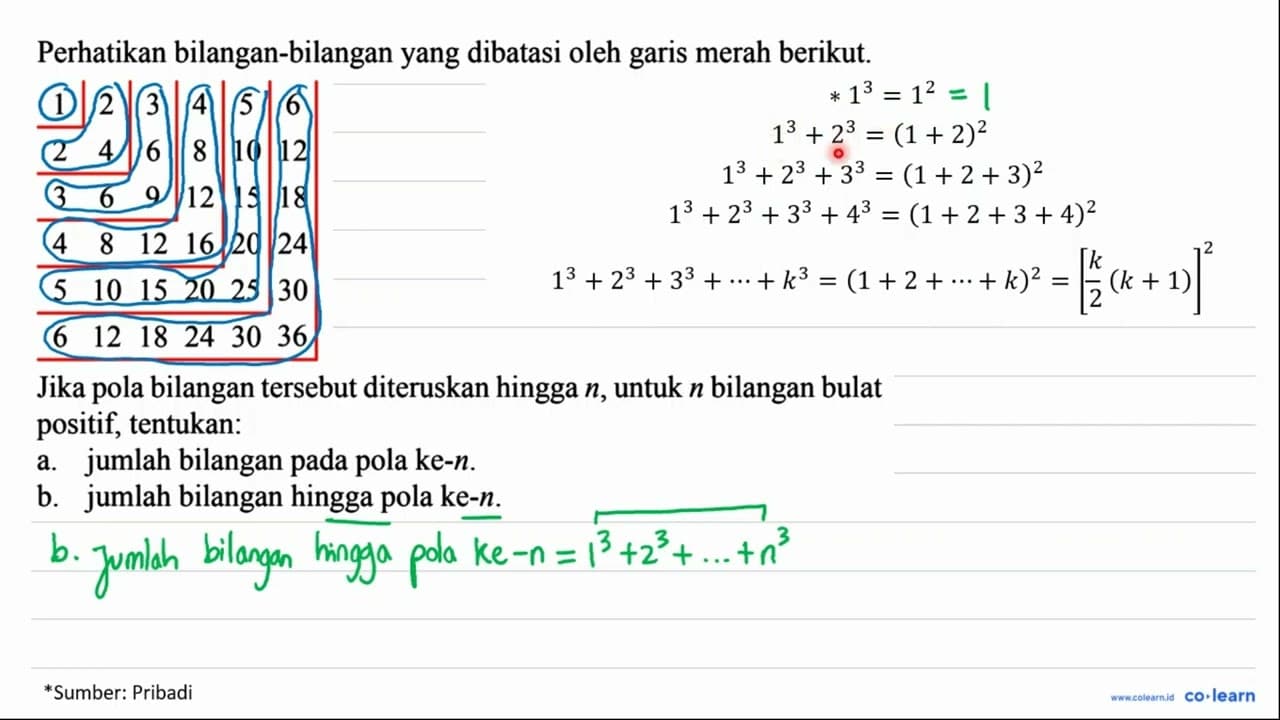 Perhatikan bilangan-bilangan yang dibatasi oleh garis merah berikut.
1 2 3 4 5 6
2 4 6 8 10 12
3 6 9 12 15 18
4 8 12 16 20 24
5 10 15 20 25 30
6 12 18 24 30 36
* 1³ = 1² = 1
1³ + 2³ = (1 + 2)²
1³ + 2³ + 3³ = (1 + 2 + 3)²
1³ + 2³ + 3³ + 4³ = (1 + 2 + 3 + 4)²
1³ + 2³ + 3³ + ⋯ + k³ = (1 + 2 + ⋯ + k)² = [k/2 (k + 1)]²
Jika pola bilangan tersebut diteruskan hingga n, untuk n bilangan bulat
positif, tentukan:
a. jumlah bilangan pada pola ke-n.
b. jumlah bilangan hingga pola ke-n.
b. Jumlah bilangan hingga pola ke-n = 1³ + 2³ + ... + n³
*Sumber: Pribadi
www.colearn.id co·learn